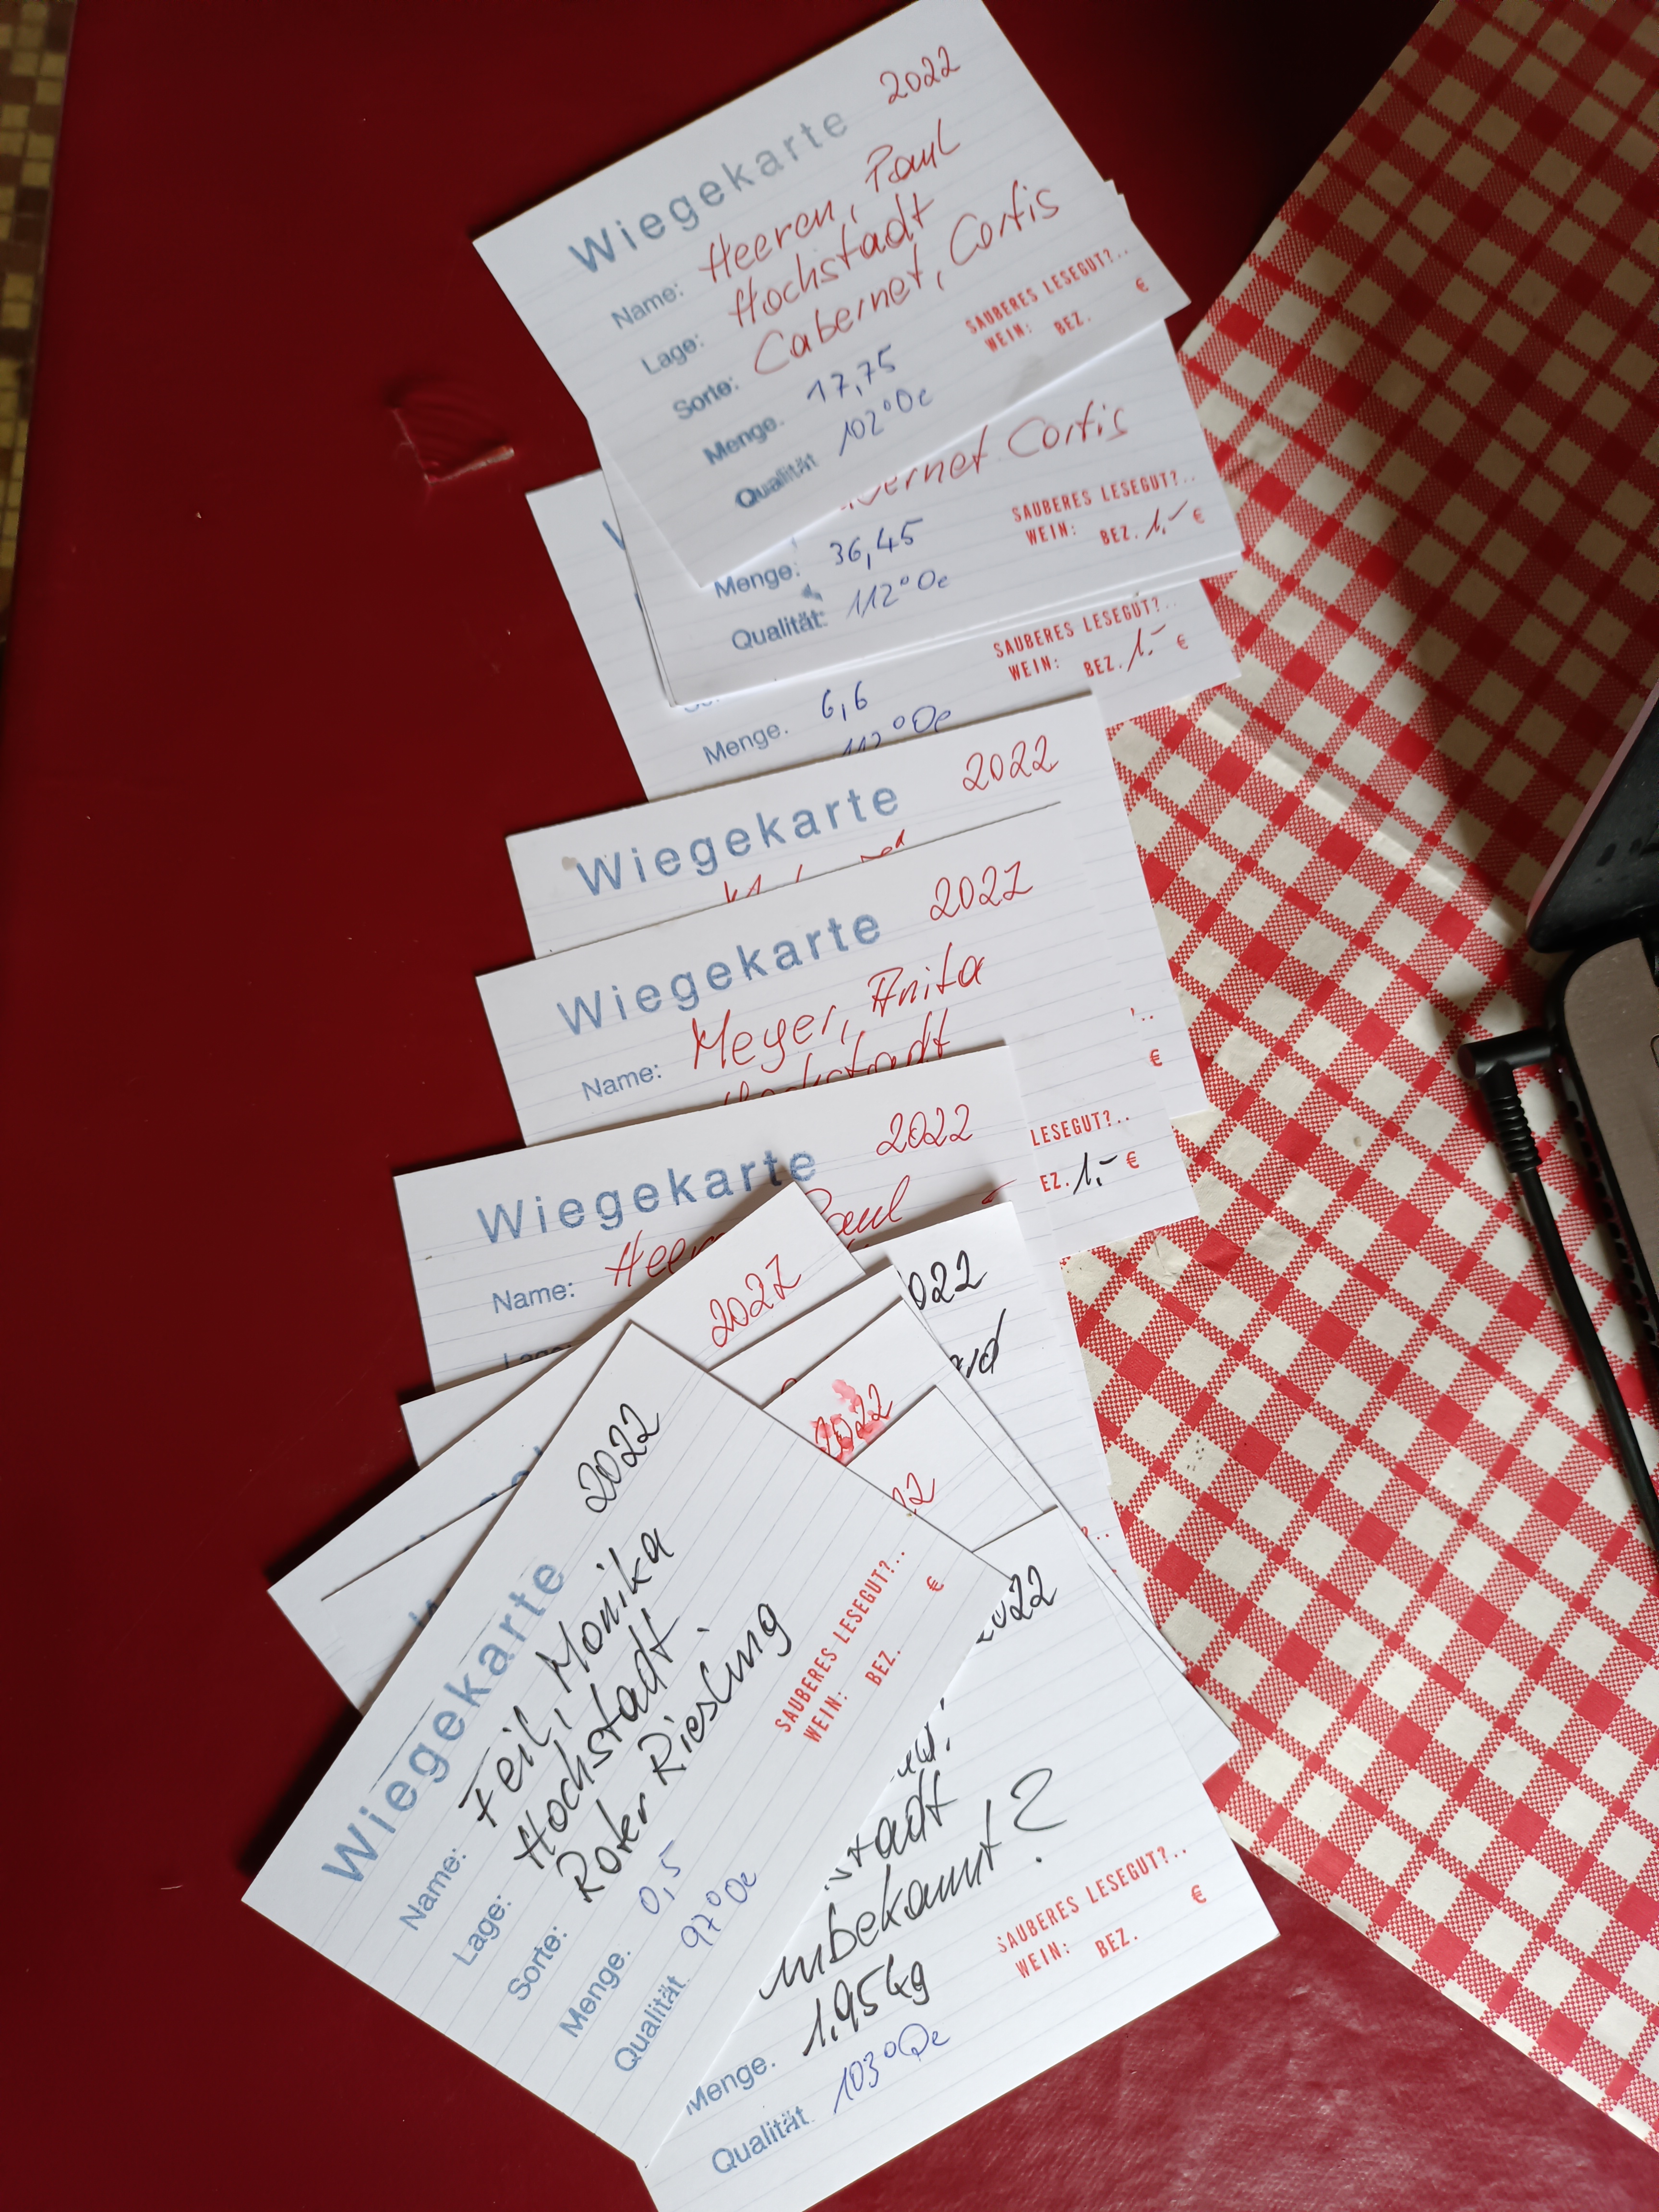 Wiegekarte 2022
Name: Heeren, Paul
Lage: Hochstadt
Sorte: Cabernet, Cortis
Menge. 17,75
Qualität 102°Oe
SAUBERES LESEGUT?..
WEIN: BEZ. €
Cortis
Menge: 36,45
Qualität: 112°Oe
SAUBERES LESEGUT?..
WEIN: BEZ. 1.- €
Menge. 6,6
112°Oe
SAUBERES LESEGUT?..
WEIN: BEZ. 1.- €
Wiegekarte 2022
Wiegekarte 2022
Name: Meyer, Anita
Hochstadt
€
LESEGUT?..
EZ. 1.- €
Wiegekarte 2022
Name: Paul
Lage:
2022
022
2022
22
Wiegekarte 2022
Name: Feil, Monika
Lage: Hochstadt
Sorte: Roter Riesling
Menge. 0,5
Qualität. 97°Oe
SAUBERES LESEGUT?..
WEIN: BEZ. €
2022
tadt
unbekannt?
Menge. 1,95kg
Qualität. 103°Oe
SAUBERES LESEGUT?..
WEIN: BEZ. €